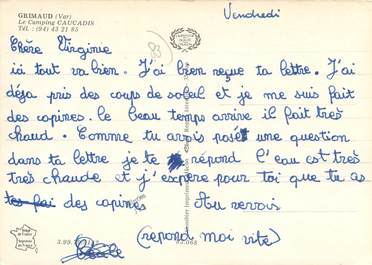 GRIMAUD (Var)
Le Camping CAUCADIS
Tél : (94) 43 21 85
Vendredi
83
Chère Virginie
ici tout va bien. J'ai bien reçue ta lettre. J'ai
déja pris des coups de soleil et je me suis fait
des copines. le beau temps arrive il fait très
chaud. Comme tu avais posé une question
dans ta lettre je te répond l'eau est très
très chaude et j'espère pour toi que tu as
des copines Au revoir
3.99.
92.068
(repond moi vite)